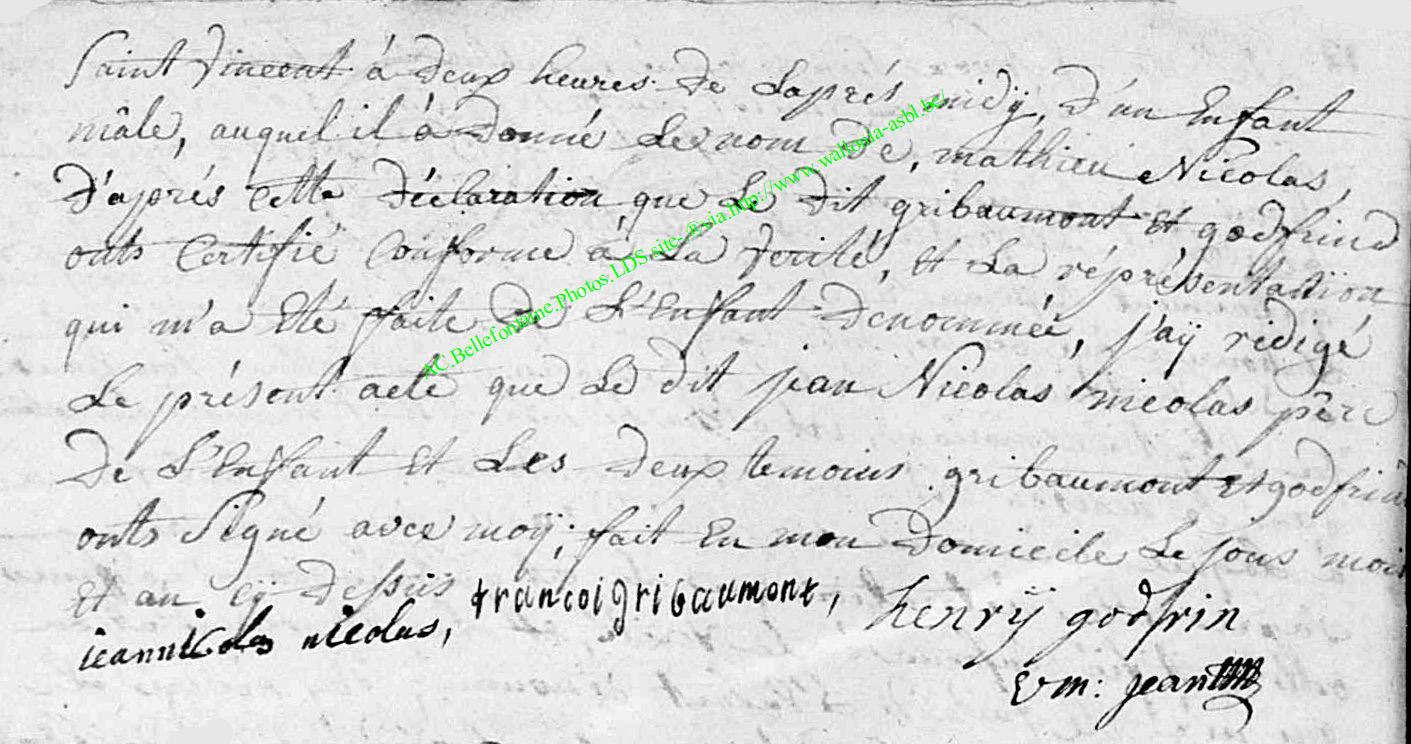 Saint Vincent à deux heures de Laprés midÿ, d'un Enfant
mâle, auquel il á donné Le nom de, mathieu Nicolas,
D'aprés cette déclaration que Le dit gribaumont et godfrind
onts Certifié Conforme à La verité, et La réprésentatiÿon
qui m'a eté faite de L'Enfant dénommée, j'aÿ ridigé
Le présent acte que Le dit jean Nicolas nicolas pêre
De L'Enfant et Les deux temoins gribaumont et godfrin
onts Signé avec moÿ; fait En mon domicile Le jous mois
et an cÿ dessus
jeannicolas nicolas, francoi gribaumont, henrÿ godfrin
vm: jean
AC.Bellefontaine.Photos.LDS.site-@via.http://www.wallonia-asbl.be/